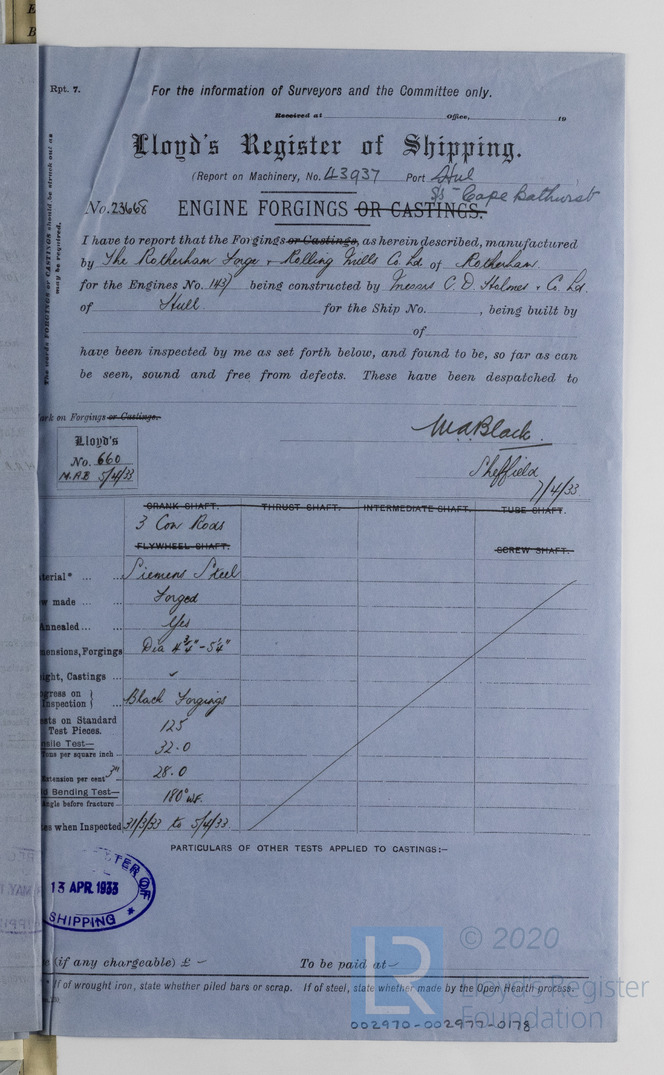 Rpt. 7.
For the information of Surveyors and the Committee only.
Received at Office, 19
Lloyd's Register of Shipping.
(Report on Machinery, No. 43937 Port Hul
SS - Cape Bathurst
No. 23668 ENGINE FORGINGS OR CASTINGS.
I have to report that the Forgings or Castings, as herein described, manufactured
by The Rotherham Forge & Rolling Mills Co. Ld. of Rotherham
for the Engines No. 1437 being constructed by Messrs C. D. Holmes & Co. Ld.
of Hull for the Ship No. , being built by
of
have been inspected by me as set forth below, and found to be, so far as can
be seen, sound and free from defects. These have been despatched to
The words FORGINGS or CASTINGS should be struck out as
may be required.
ark on Forgings or Castings.
Lloyd's
No. 660
5/4/33
W.A. Black.
Sheffield
7/4/33
CRANK SHAFT. THRUST SHAFT. INTERMEDIATE SHAFT. TUBE SHAFT.
3 Con Rods
FLYWHEEL SHAFT. SCREW SHAFT.
terial* ... ... Siemens Steel
w made ... ... Forged
Annealed ... ... Yes
mensions, Forgings Dia 4 3/4" - 5 1/4"
ight, Castings ... ✓
ogress on }
Inspection } ... Black Forgings
sts on Standard
Test Pieces. 125
nsile Test—
Tons per square inch 32.0
xtension per cent 3" 28.0
d Bending Test—
ngle before fracture 180° W.F.
es when Inspected 31/3/33 to 5/4/33
PARTICULARS OF OTHER TESTS APPLIED TO CASTINGS:—
TER OF
13 APR. 1933
SHIPPING *
(if any chargeable) £ – To be paid at –
* If of wrought iron, state whether piled bars or scrap. If of steel, state whether made by the Open Hearth process.
LR
© 2020
Lloyd's Register
Foundation
002970-002977-0178